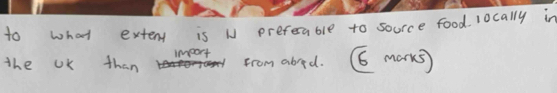 to what extent is it preferable to source food locally in
the UK than import from abrod. (6 marks)